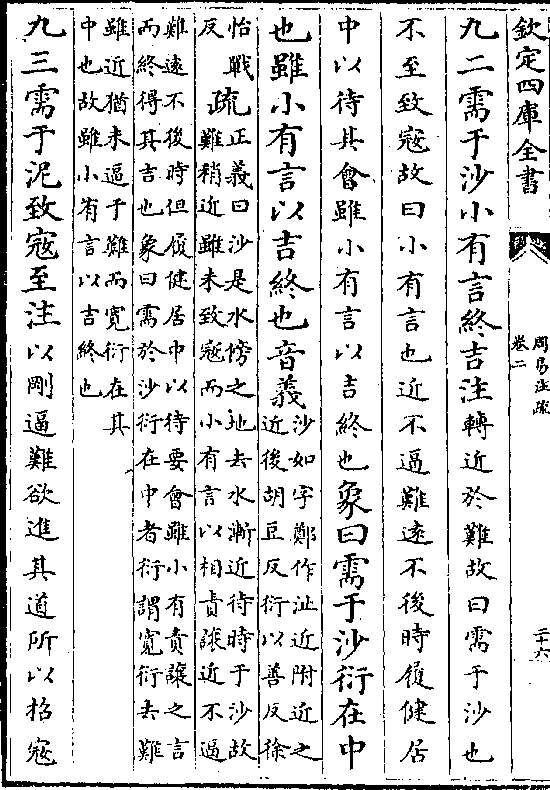 欽定四庫全書
周易注疏
卷二
二十六
九二需于沙小有言終吉注轉近於難故曰需于沙也
不至致寇故曰小有言也近不逼難遠不後時履健居
中以待其會雖小有言以吉終也象曰需于沙衍在中
也雖小有言以吉終也音義沙如字鄭作沚近附近之
近後胡豆反衍以善反徐
怡戰
反
疏正義曰沙是水傍之地去水漸近待時于沙故
難稍近雖未致寇而小有言以相責讓近不逼
難遠不後時但履健居中以待要會雖小有責讓之言
而終得其吉也象曰需於沙衍在中者衍謂寛衍去難
雖近猶未逼于難而寛衍在其
中也故雖小有言以吉終也
九三需于泥致寇至注以剛逼難欲進其道所以招寇